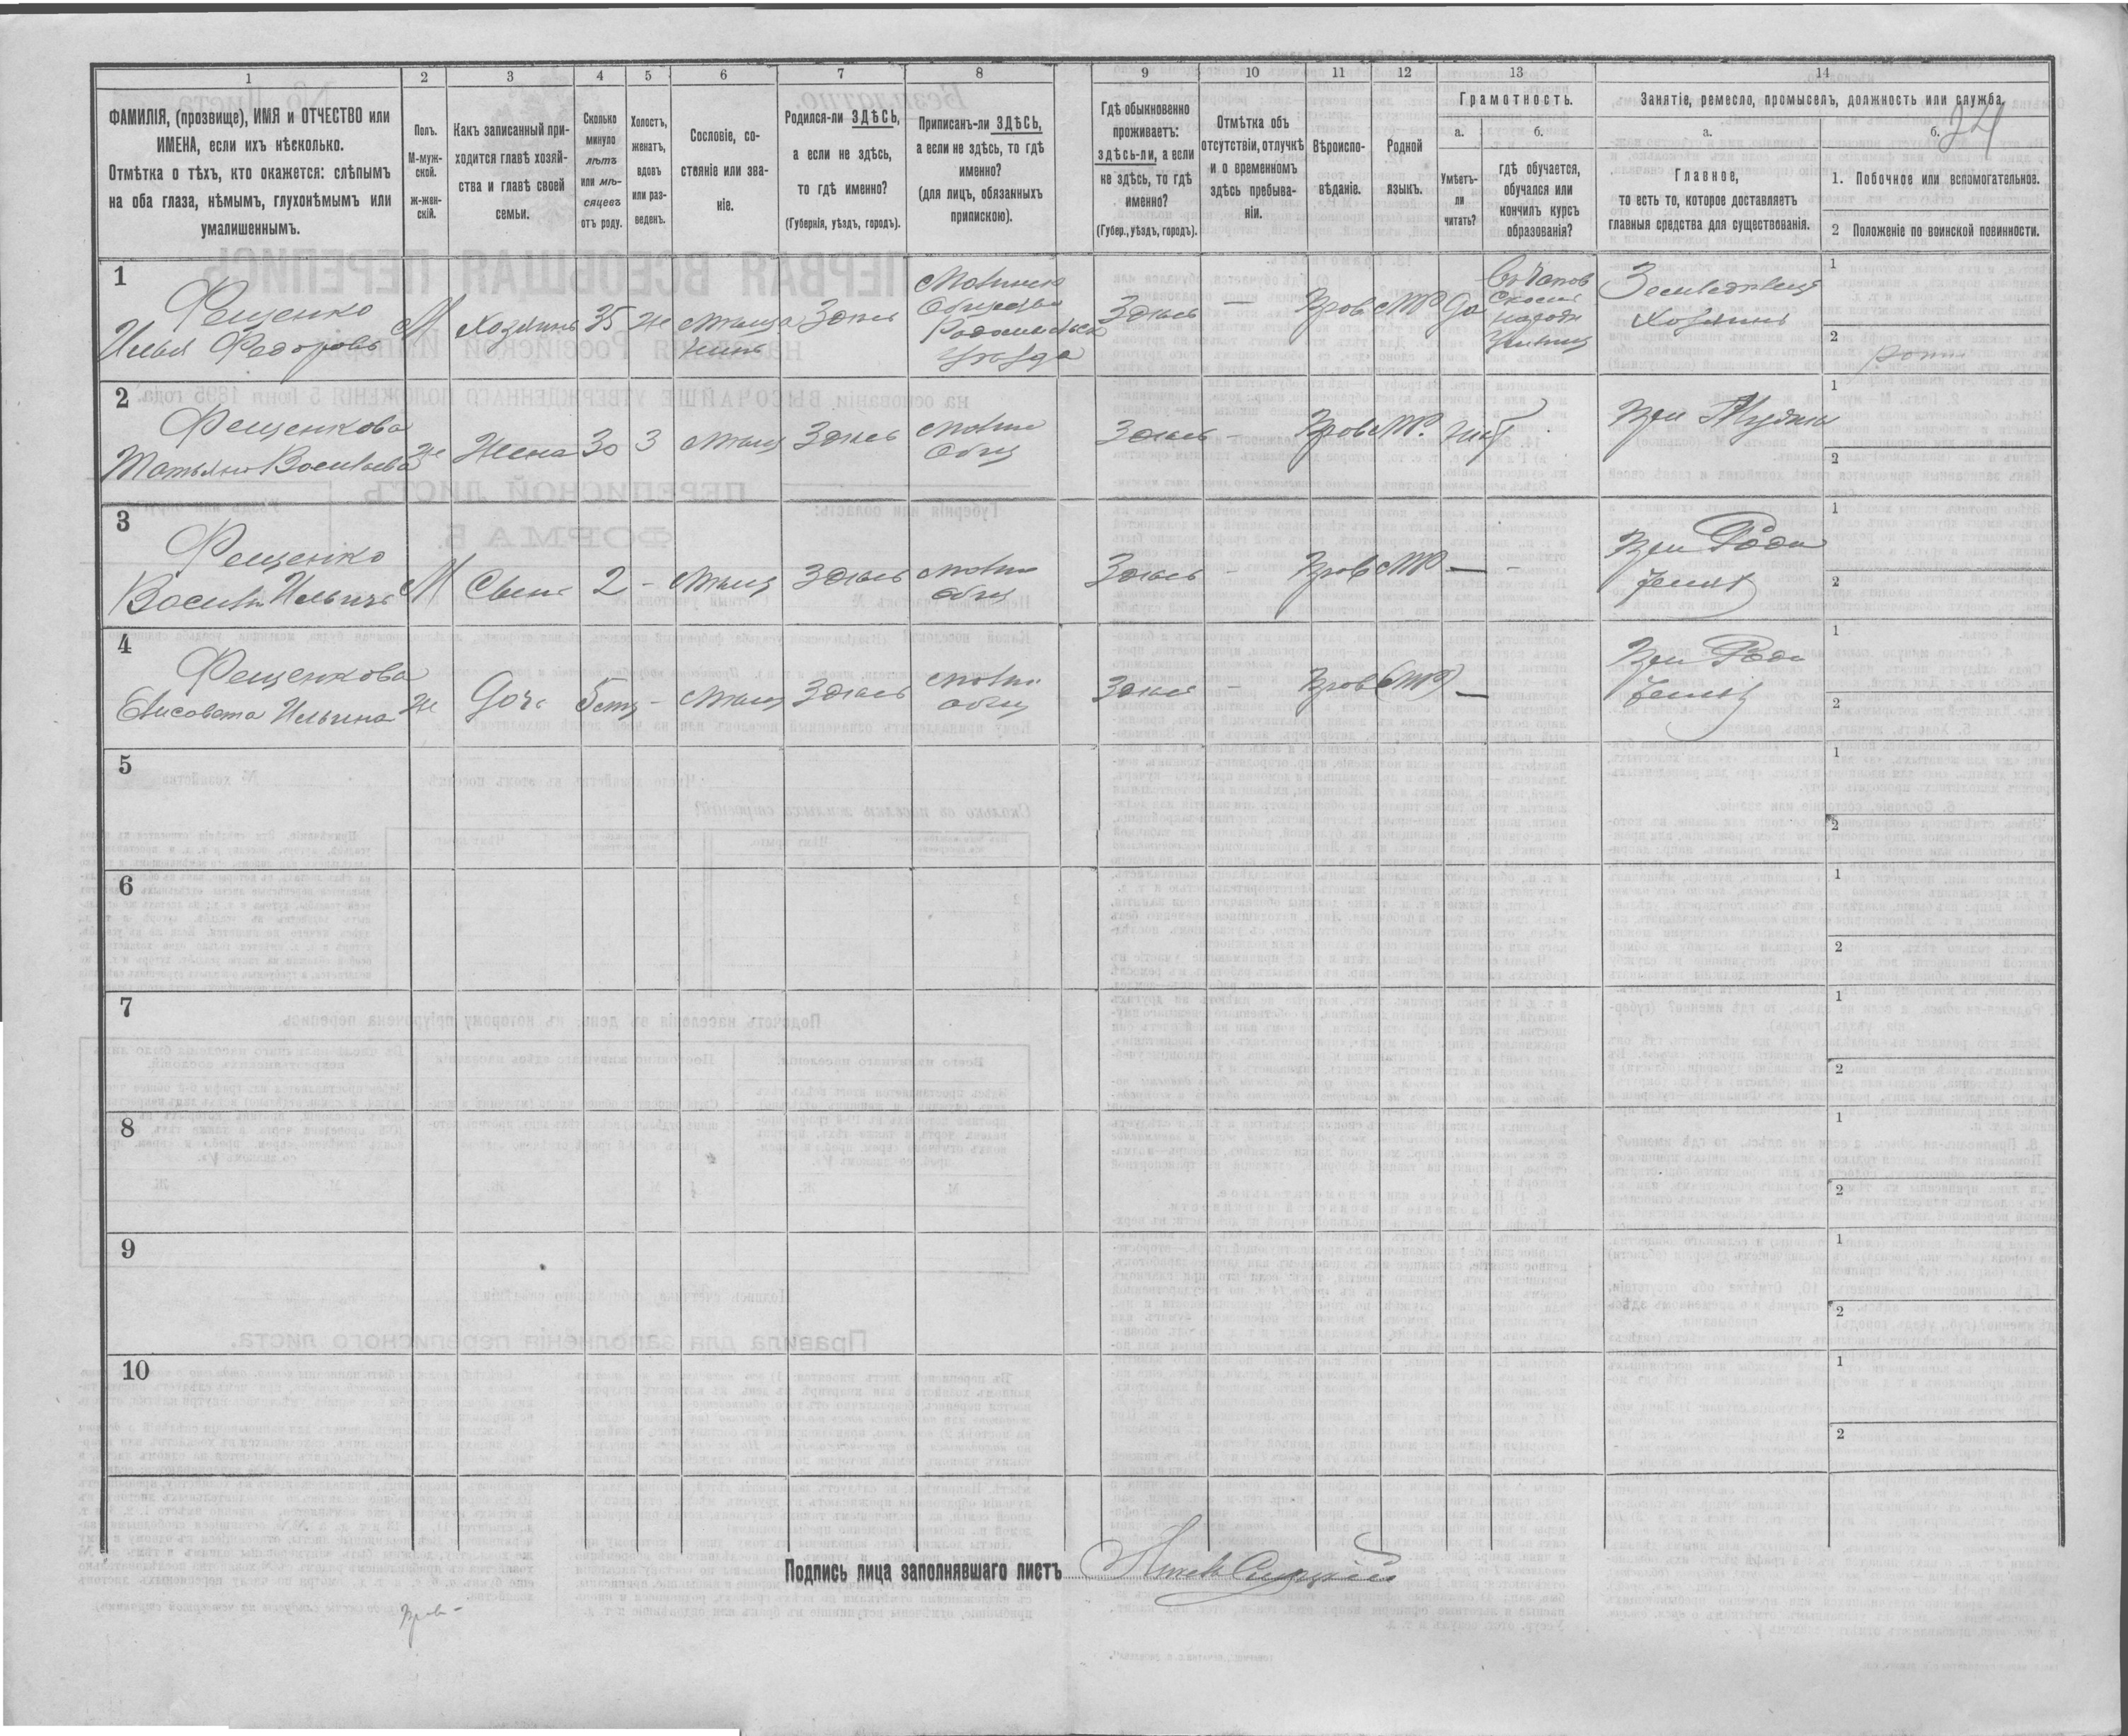 1
2
3
4
5
6
7
8
9
10
11
12
13
14
ФАМИЛІЯ, (прозвище), ИМЯ и ОТЧЕСТВО или
ИМЕНА, если ихъ нѣсколько.
Отмѣтка о тѣхъ, кто окажется: слѣпымъ
на оба глаза, нѣмымъ, глухонѣмымъ или
умалишеннымъ.
Полъ.
М-муж-
ской.
ж-жен-
скій.
Какъ записанный при-
ходится главѣ хозяй-
ства и главѣ своей
семьи.
Сколько
минуло
лѣтъ
или мѣ-
сяцевъ
отъ роду.
Холостъ,
женатъ,
вдовъ
или раз-
веденъ.
Сословіе, со-
стояніе или зва-
ніе.
Родился-ли ЗДѢСЬ,
а если не здѣсь,
то гдѣ именно?
(Губернія, уѣздъ, городъ).
Приписанъ-ли ЗДѢСЬ,
а если не здѣсь, то гдѣ
именно?
(для лицъ, обязанныхъ
припискою).
Гдѣ обыкновенно
проживаетъ:
здѣсь-ли, а если
не здѣсь, то гдѣ
именно?
(Губер., уѣздъ, городъ).
Отмѣтка объ
отсутствіи, отлучкѣ
и о временномъ
здѣсь пребыва-
ніи.
Вѣроиспо-
вѣданіе.
Родной
языкъ.
Грамотность.
а.
Умѣетъ-
ли
читать?
б.
гдѣ обучается,
обучался или
кончилъ курсъ
образованія?
Занятіе, ремесло, промыселъ, должность или служба.
а.
Главное,
то есть то, которое доставляетъ
главныя средства для существованія.
б.
24
1. Побочное или вспомогательное.
2 Положеніе по воинской повинности.
1
Фещенко
Илья Федоровъ
М
Хозяинъ
35
же
мѣща
нинъ
Здѣсь
Общества
Радомысльск
Уѣзда
Здѣсь
—
Прав
МР
Да
народн
Хозяинъ
1
2
2
Фещенкова
Татьяна Васильева
же
Жена
30
З
мѣщ
Здѣсь
Общ
Здѣсь
-
Прав
МР.
нѣт
При Мужи
1
2
3
Фещенко
Василій Ильичъ
М
Сынъ
2
-
мѣщ
Здѣсь
общ
Здѣсь
-
Прав
МР
—
-
При Роди
телях
1
2
4
Фещенкова
Елисовета Ильина
же
Дочь
-
мѣщ
Здѣсь
общ
Здѣсь
-
Прав
МР
—
При Роди
телях
1
2
5
1
2
6
1
2
7
1
2
8
1
2
9
1
2
10
1
2
Подпись лица заполнявшаго листъ